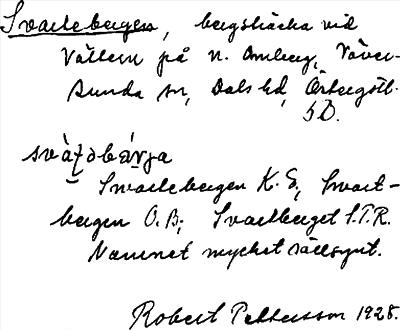 Svartebergen, bergsträcka vid
Vättern på n. Omberg, Väver-
sunda sn, Dals hd, Östergötl.
SD.
svàʈəbæ̀rja
Svartebergen K. S., Svart-
bergen O.B.; Svartberget S.T.R.
Namnet mycket sällsynt.
Robert Pettersson 1928.